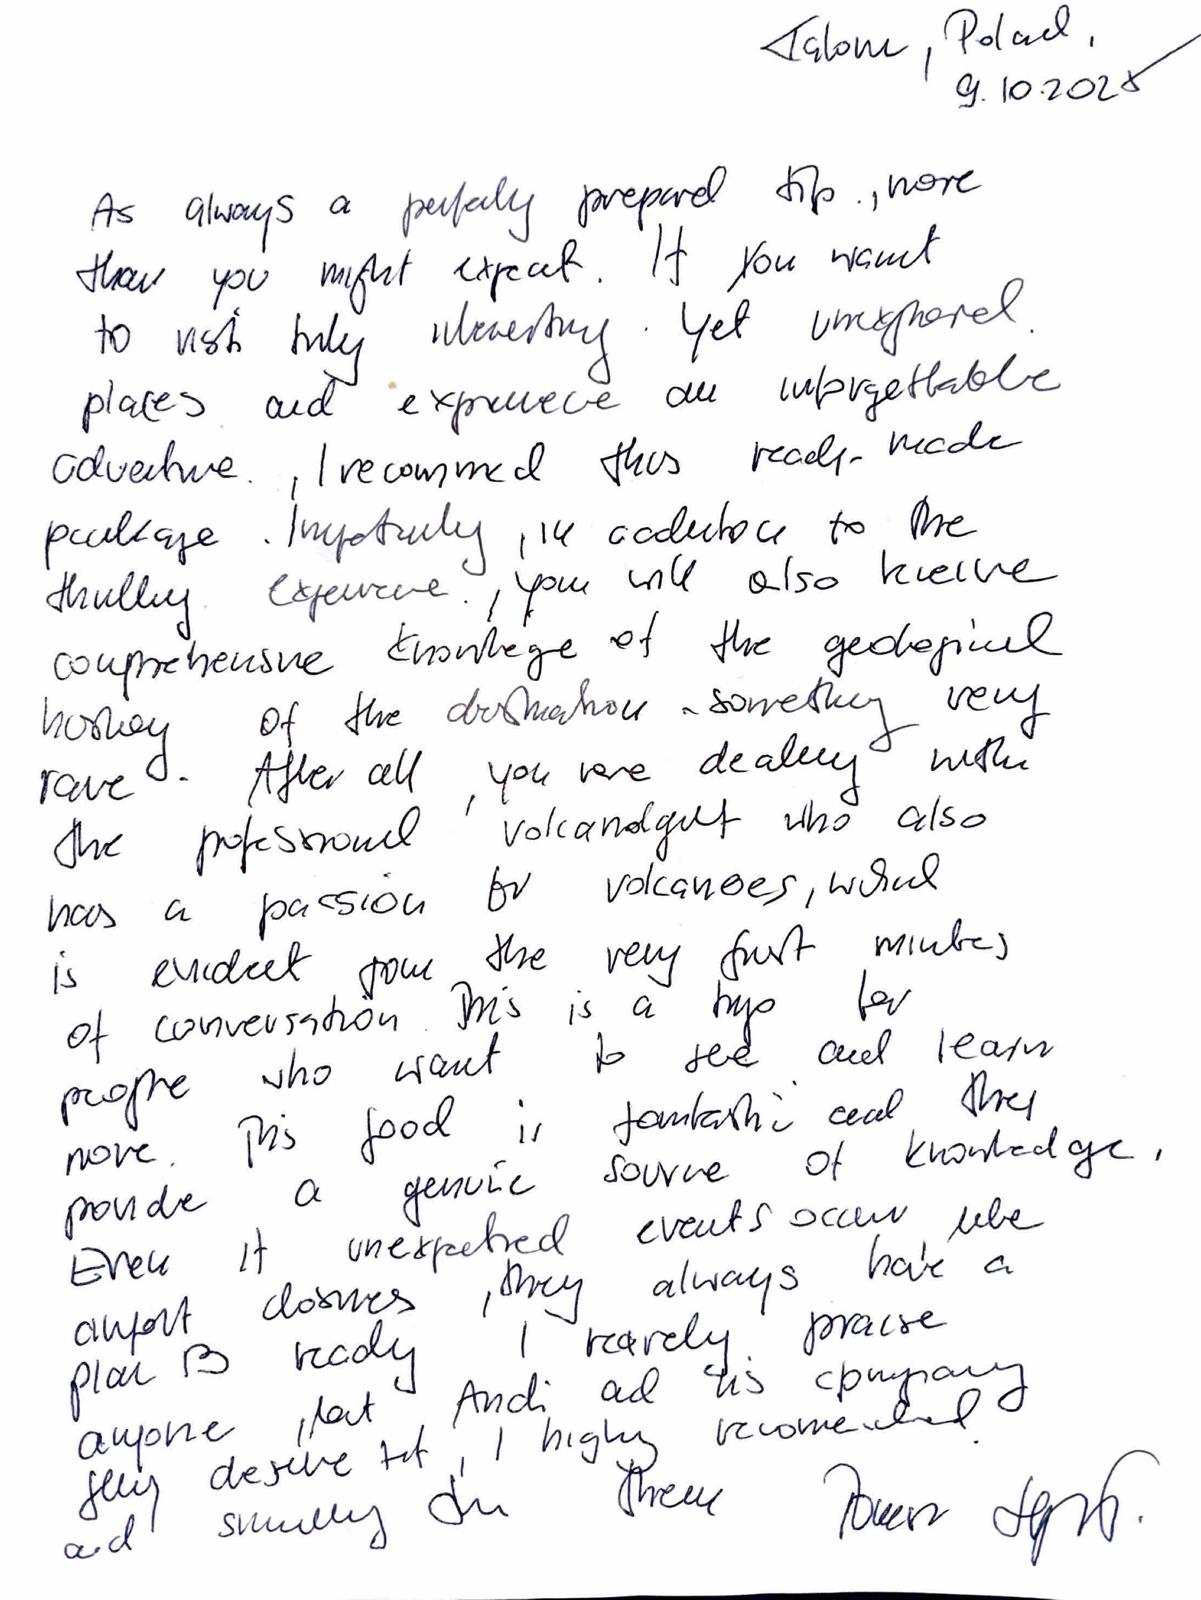 Poland,
9.10.2025
As always a perfectly prepared trip, more
than you might expect. If you want
to visit truly interesting yet unexplored
places and experience an unforgettable
adventure, I recommend this ready-made
package. Importantly, in addition to the
thrilling experience, you will also receive
comprehensive knowledge of the geological
history of the destination - something very
rare. After all, you are dealing with
the professional volcanologist who also
has a passion for volcanoes, which
is evident from the very first minutes
of conversation. This is a trip for
people who want to see and learn
more. This food is fantastic and they
provide a genuine source of knowledge.
Even if unexpected events occur like
airport closures, they always have a
plan B ready. I rarely praise
anyone, but Andi and his company
fully deserve it, I highly recommend
and them